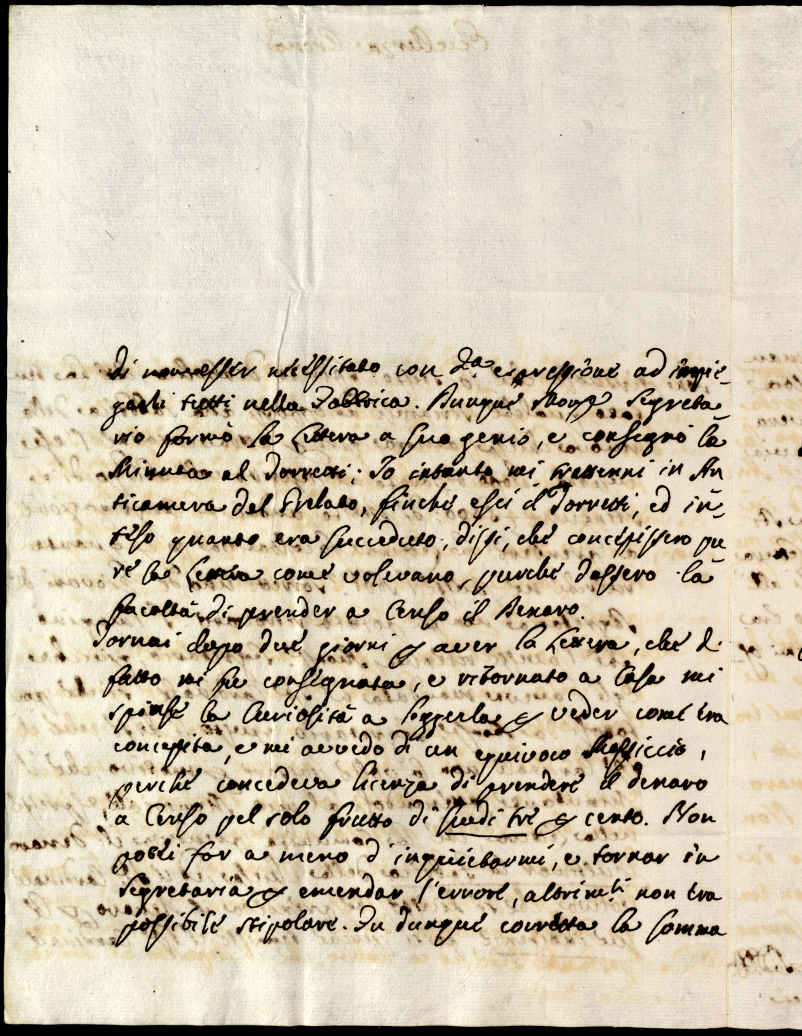 di non esser necessitato con d.ª espressione ad impie-
garli tutti nella Fabbrica. Dunque Monsig.r Segreta
rio formò la Lettera a suo genio, e consegnò la
Minuta al Torretti; Io intanto mi trattenni in An
ticamera del Prelato, finche escì il Torretti, ed in-
teso quanto era succeduto, dissi, che concepissero pu
re la Lettera come volevano, purche dassero la
facoltà di prender a Censo il Denaro.
Tornai dopo due giorni p aver la Lettera, che di
fatto mi fu consegnata, e ritornato a Casa mi
spinse la Curiosità a leggerla p veder come era
concepita, e mi avvedo di un equivoco Massiccio,
perche concedeva licenza di prendere il denaro
a Censo pel solo frutto di scudi trè p cento. Non
potei far a meno d'inquietarmi, e tornar in
Segretaria p emendar l'errore, altrim.ti non era
possibile stipolare. Fu dunque corretta la somma